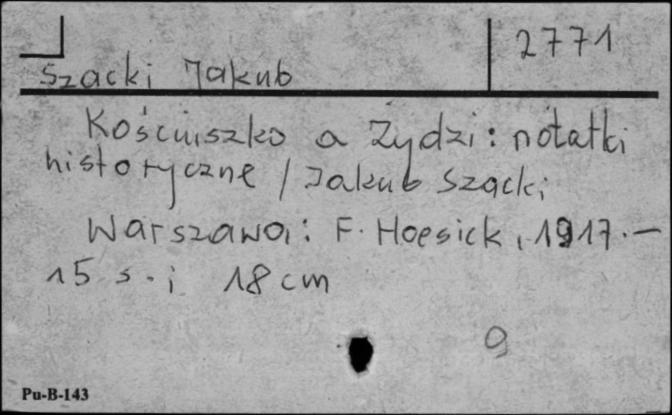 2771
Szacki Jakub
Kościuszko a Żydzi: notatki
historyczne / Jakub Szacki
Warszawa: F. Hoesick, 1917. —
15 s. ; 18 cm
g
Pu-B-143